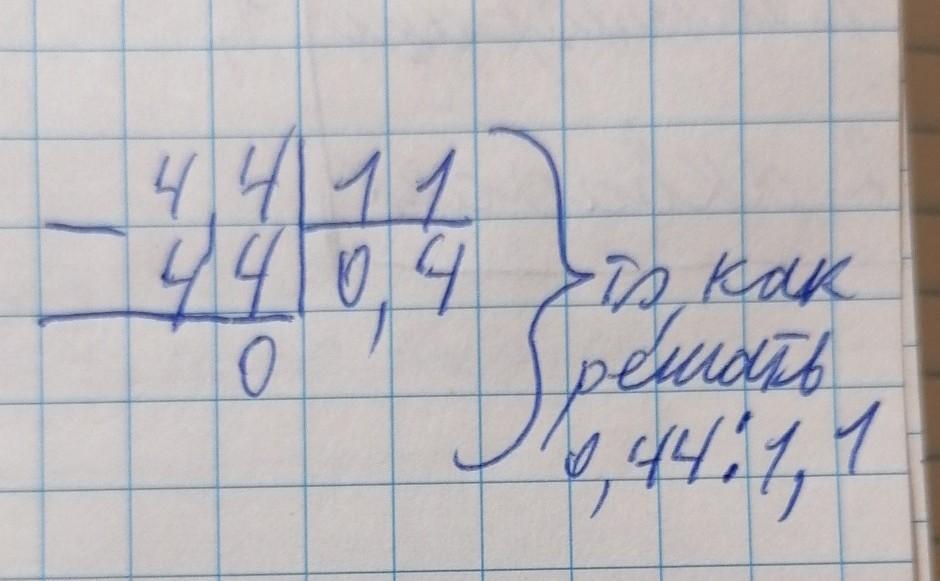 4,4 11
— 44 0,4
0
то, как
решать
0,44:1,1